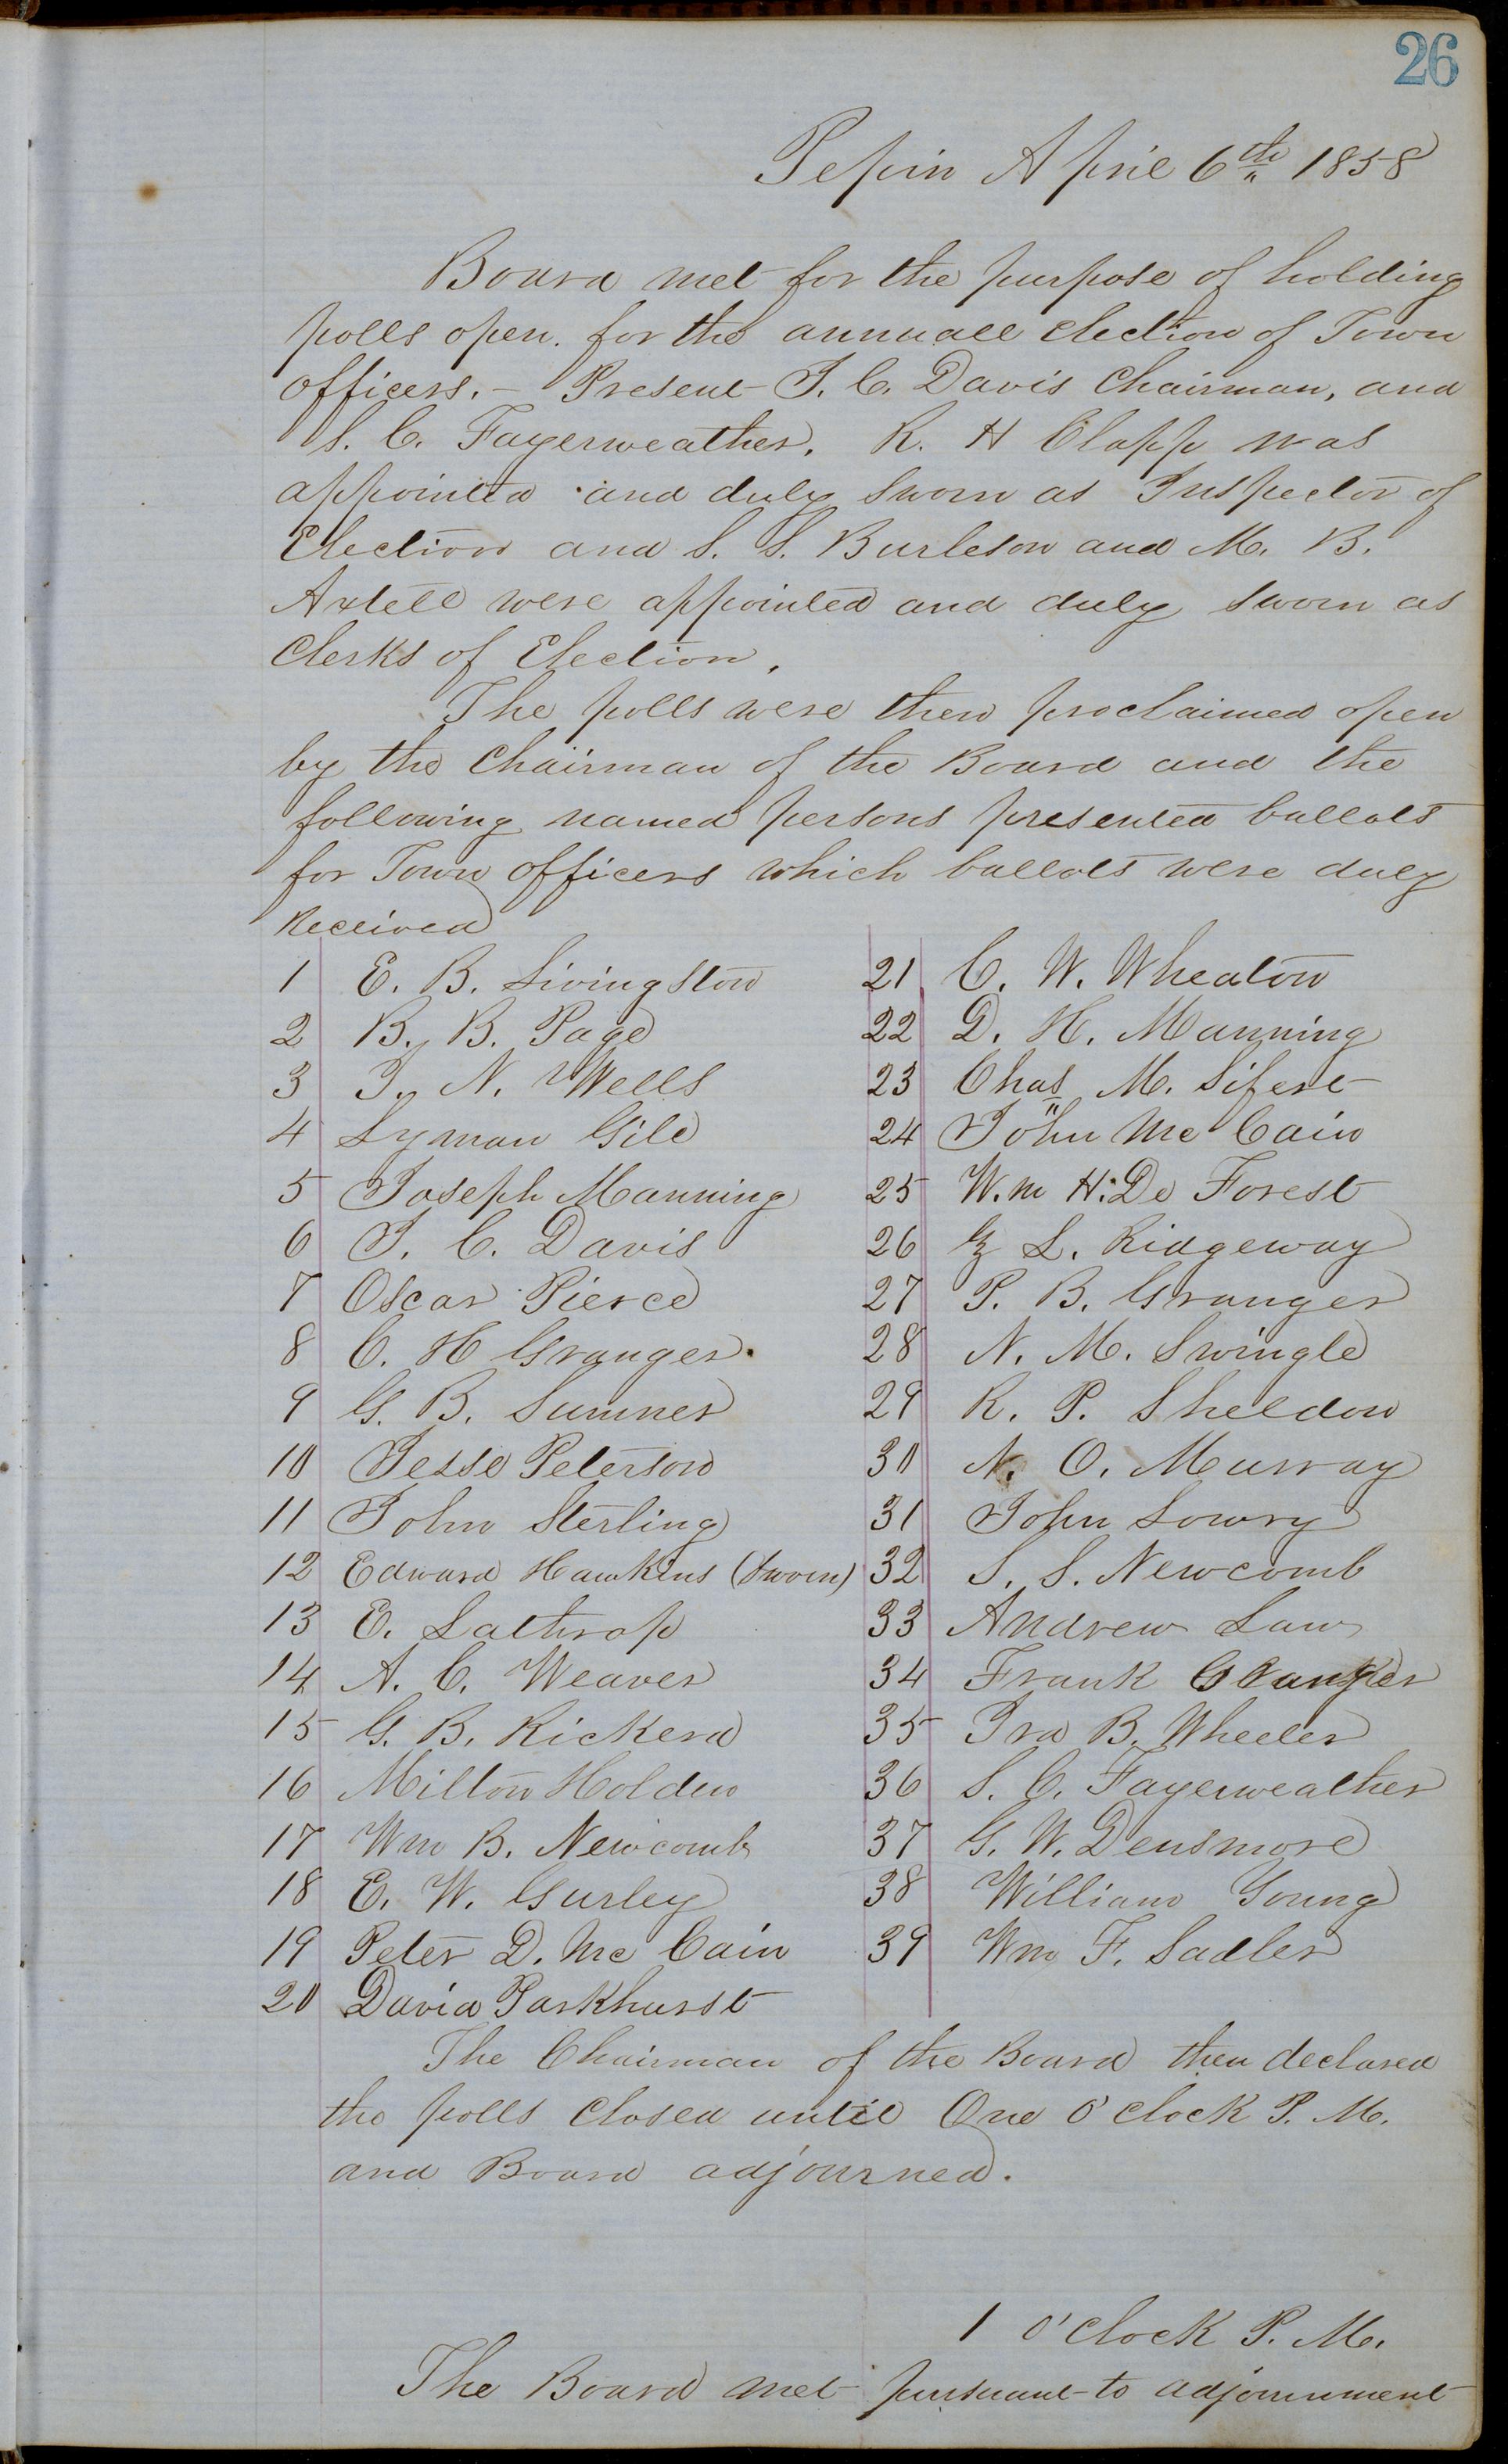 26
Pepin April 6th 1858
Board met for the purpose of holding
polls open. for the annuall election of Town
officers. – Present J. C. Davis Chairman, and
S. C. Fayerweather. R. H Clapp was
appointed and duly sworn as Inspector of
Election and S. S. Burleson and M. B.
Axtell were appointed and duly sworn as
Clerks of Election.
The polls were then proclaimed open
by the Chairman of the Board and the
following named persons presented ballots
for Town officers which ballots were duly
Received
1 E. B. Livingston
2 B. B. Page
3 J. N. Wells
4 Lyman Gile
5 Joseph Manning
6 J. C. Davis
7 Oscar Pierce
8 C. H Granger.
9 G. B. Sumner
10 Jesse Peterson
11 John Sterling
12 Edward Hawkins (Sworn)
13 E. Lathrop
14 A. C. Weaver
15 G. B. Rickerd
16 Milton Holden
17 Wm B. Newcomb
18 E. W. Gurley
19 Peter D. Mc Cain
20 David Parkhurst
21 C. W. Wheaton
22 D. H. Manning
23 Chas M. Sifert
24 John Mc Cain
25 W.m H. De Forest
26 L. Ridgeway
27 P. B. Granger
28 N. M. Swingle
29 R. P. Sheldon
30 N. O. Murray
31 John Lowry
32 S. S. Newcomb
33 Andrew Law
34 Frank Granger
35 Ira B. Wheeler
36 S. C. Fayerweather
37 G. W. Densmore
38 William Young
39 Wm F. Sadler
The Chairman of the Board then declared
the polls closed until One O'clock P. M.
and Board adjourned.
1 O'clock P. M.
The Board met pursuant to adjournment